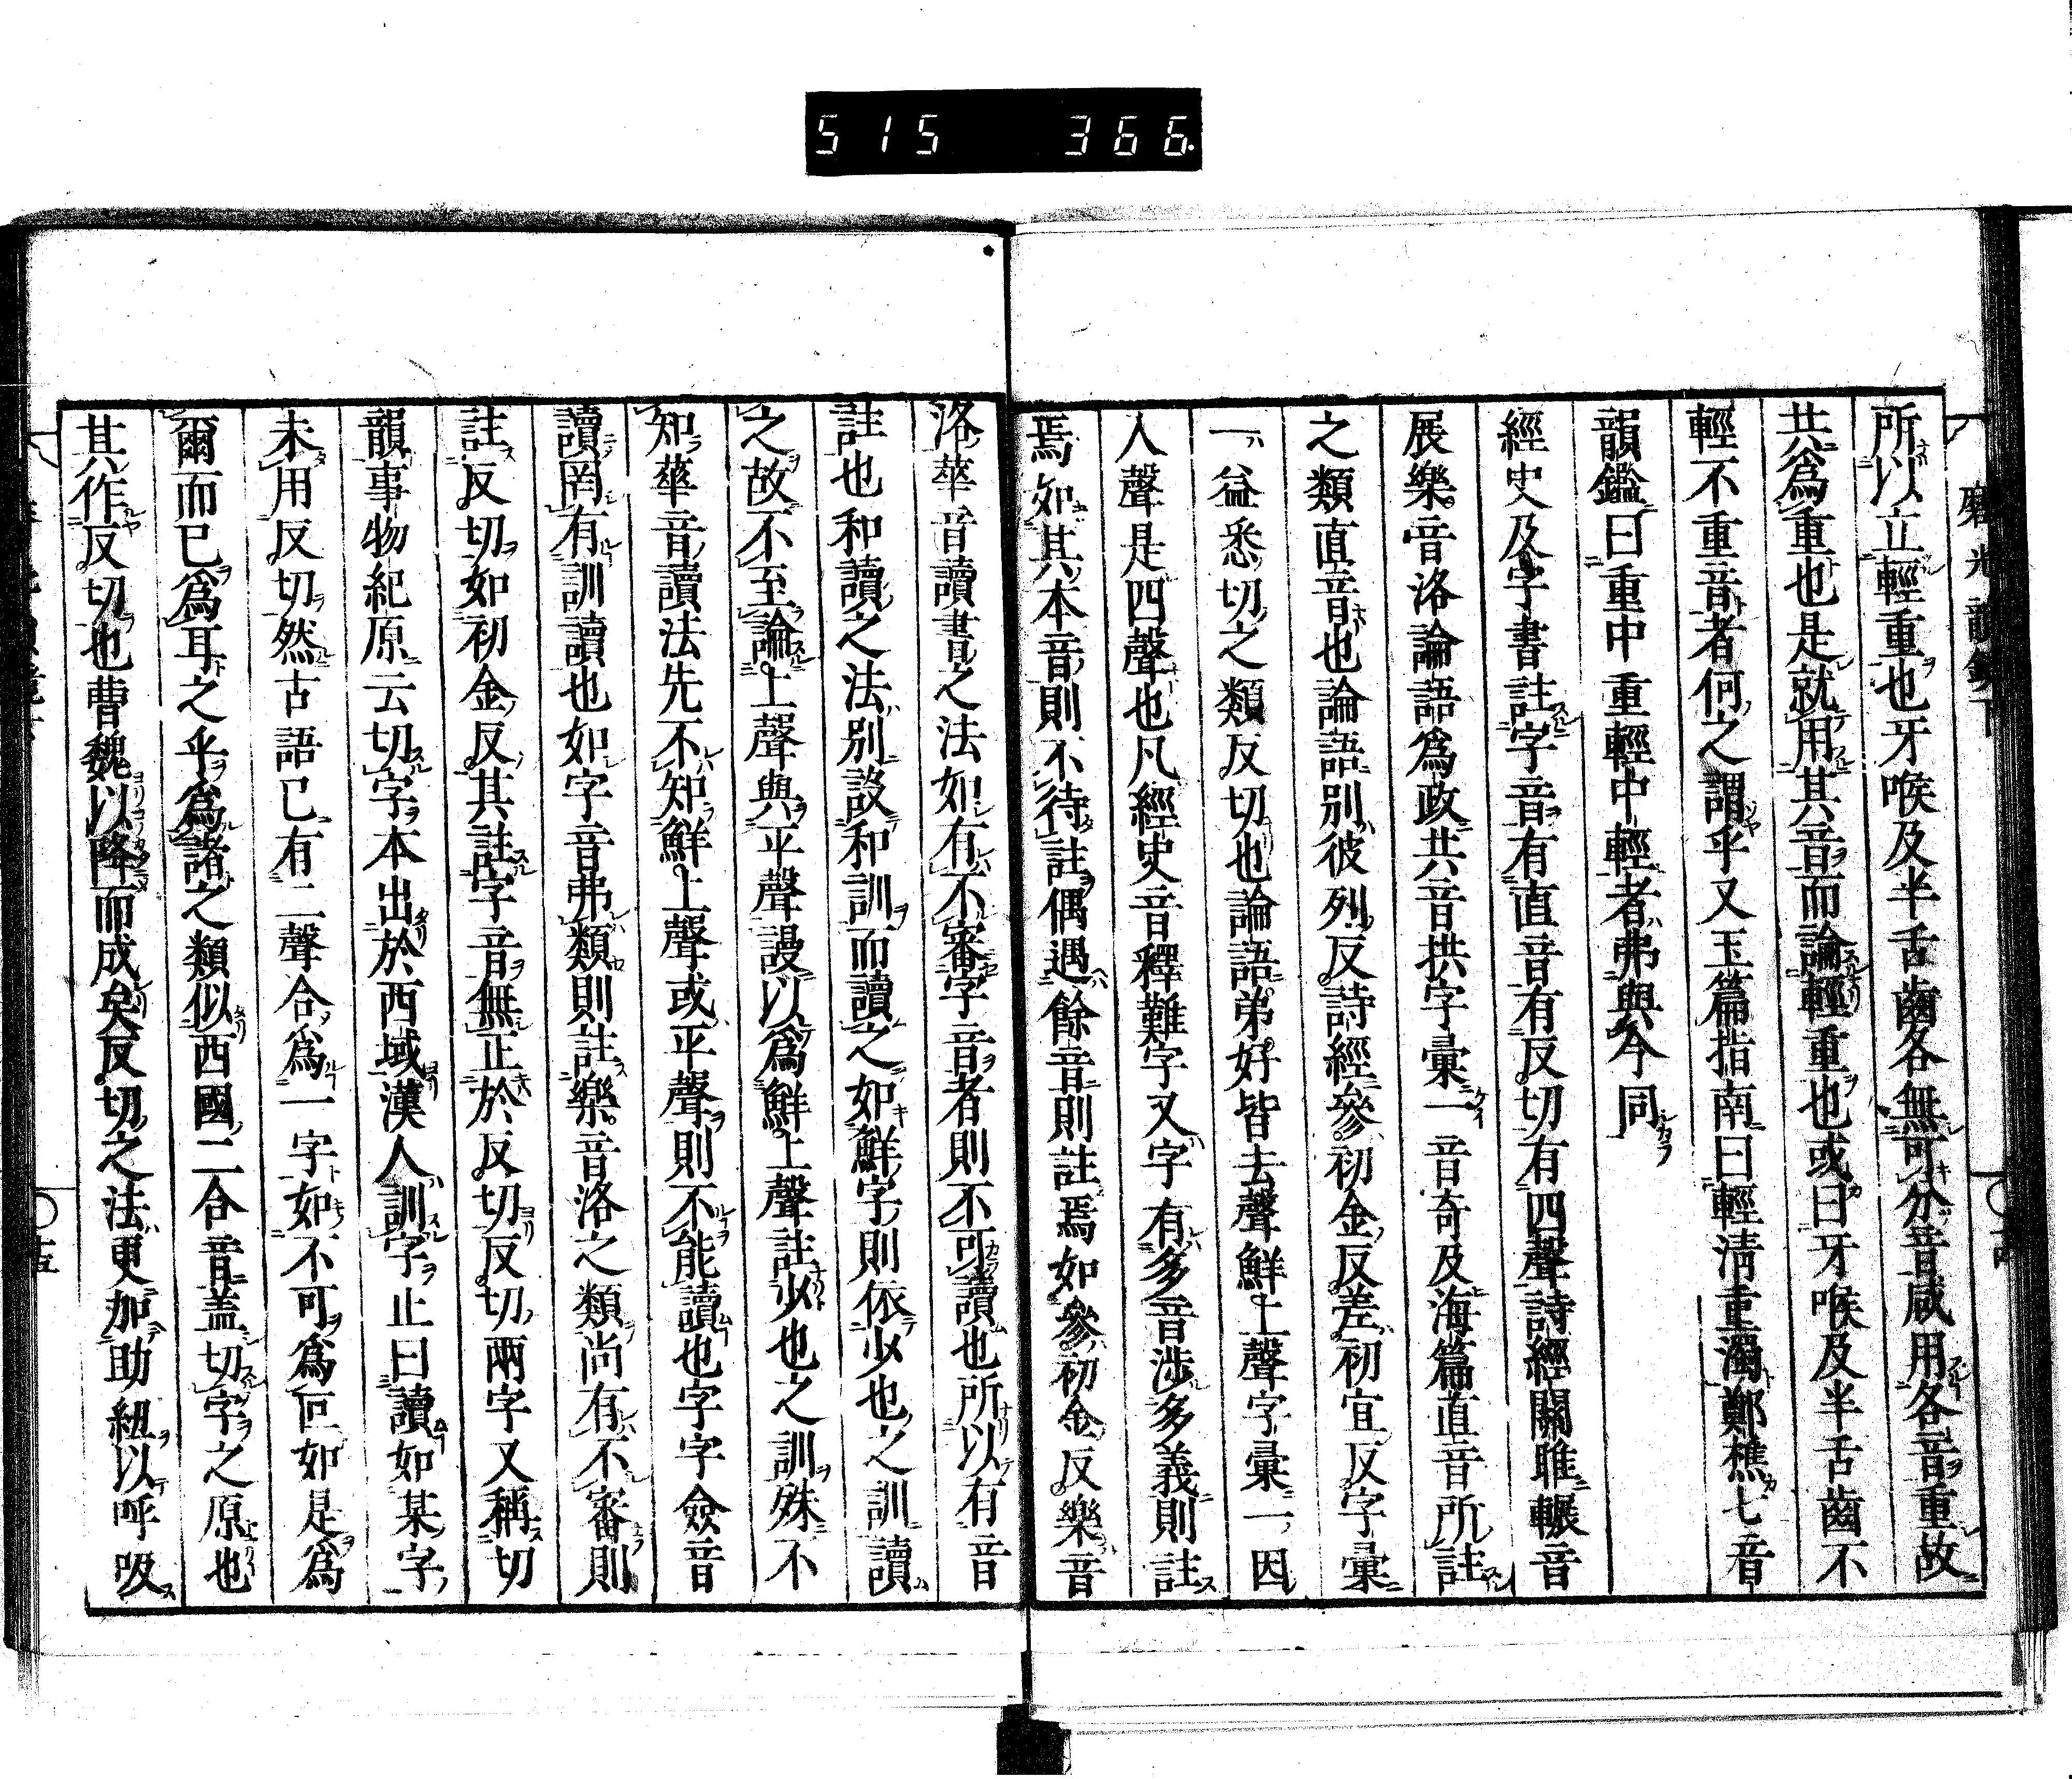 515 366
磨光韻鏡下
所以立輕重也牙喉及半舌齒各無可分音咸用各音重故
共爲重也是就用其音而論輕重也或曰牙喉及半舌齒不
輕不重音者何之謂乎又玉篇指南曰輕淸重濁鄭樵七音
韻鑑曰重中重輕中輕者弗與今同
經史及字書註字音有直音有反切有四聲詩經關雎輾音
展樂音洛論語爲政共音拱字彙一音奇及海篇直音所註
之類直音也論語別彼列反詩經參初金反差初宜反字彙
一益悉切之類反切也論語弟好皆去聲鮮上聲字彙一因
入聲是四聲也凡經史音釋難字又字有多音渉多義則註
焉如其本音則不待註偶遇餘音則註焉如參初金反樂音
洛華音讀書之法如有不審字音者則不可讀也所以有音
註也和讀之法別設和訓而讀之如鮮字則依少也之訓讀
之故不至論上聲與平聲謾以爲鮮上聲註少也之訓殊不
知華音讀法先不知鮮上聲或平聲則不能讀也字字僉音
讀罔有訓讀也如字音弗類則註樂音洛之類尚有不審則
註反切如初金反其註字音無正於反切反切兩字又稱切
韻事物紀原云切字本出於西域漢人訓字止曰讀如某字
未用反切然古語已有二聲合爲一字如不可爲叵如是爲
爾而已爲耳之乎爲諸之類似西國二合音盖切字之原也
其作反切也曹魏以降而成矣反切之法更加助紐以呼吸